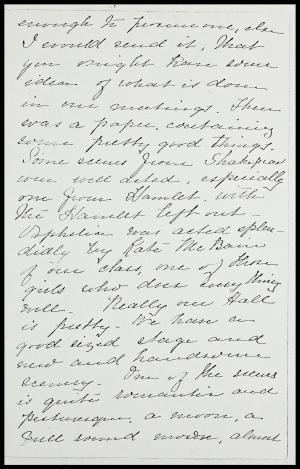 enough to procure one, else
I would send it, that
you might have some
idea of what is done
in our meetings. There
was a paper, containing
some pretty good things.
Some scenes from Shakspear
were well acted, especially
one from Hamlet, with
the Hamlet left out –
Ophelia was acted splen-
didly by Kate McBain
of our class, one of those
girls who does everything
well – Really our Hall
is pretty – We have a
good sized stage and
new and handsome
scenery. One of the scenes
is quite romantic and
picturesque, a moon, a
full round moon, almost